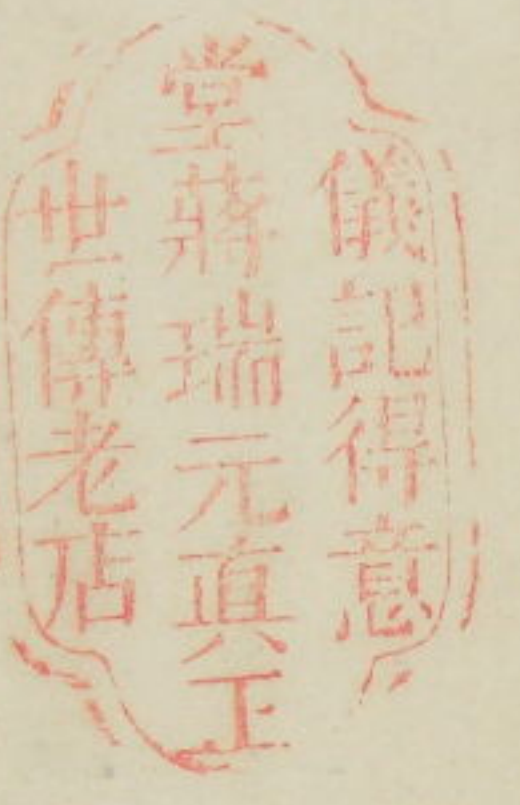 儀記得意
堂蔣瑞元真正
世傳老店